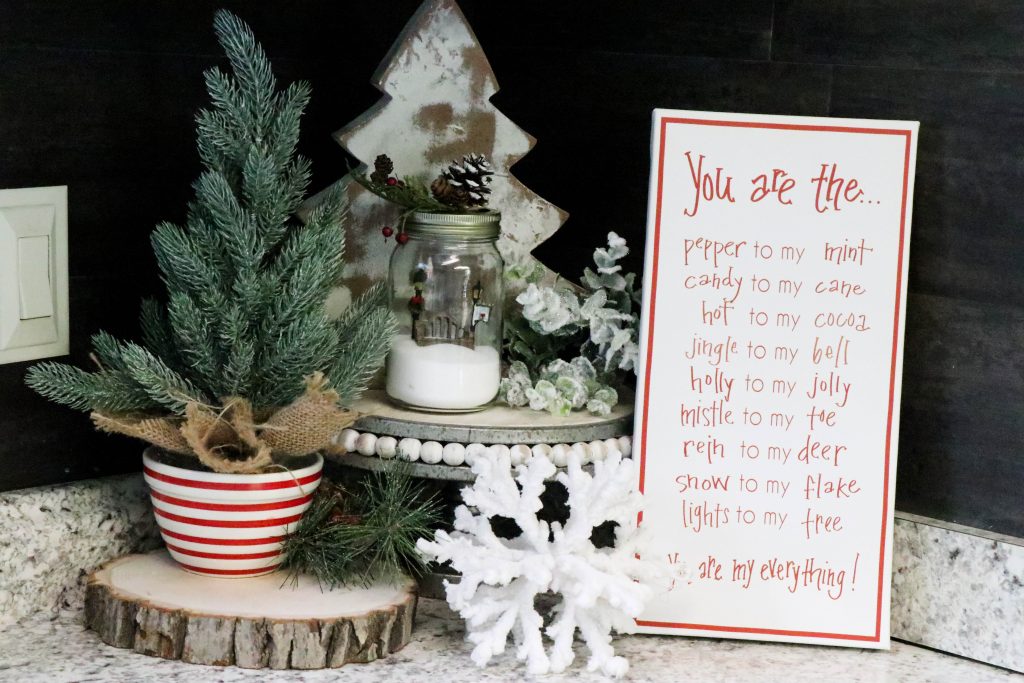 You are the...
pepper to my mint
candy to my cane
hot to my cocoa
jingle to my bell
holly to my jolly
mistle to my toe
rein to my deer
snow to my flake
lights to my tree
You are my everything!